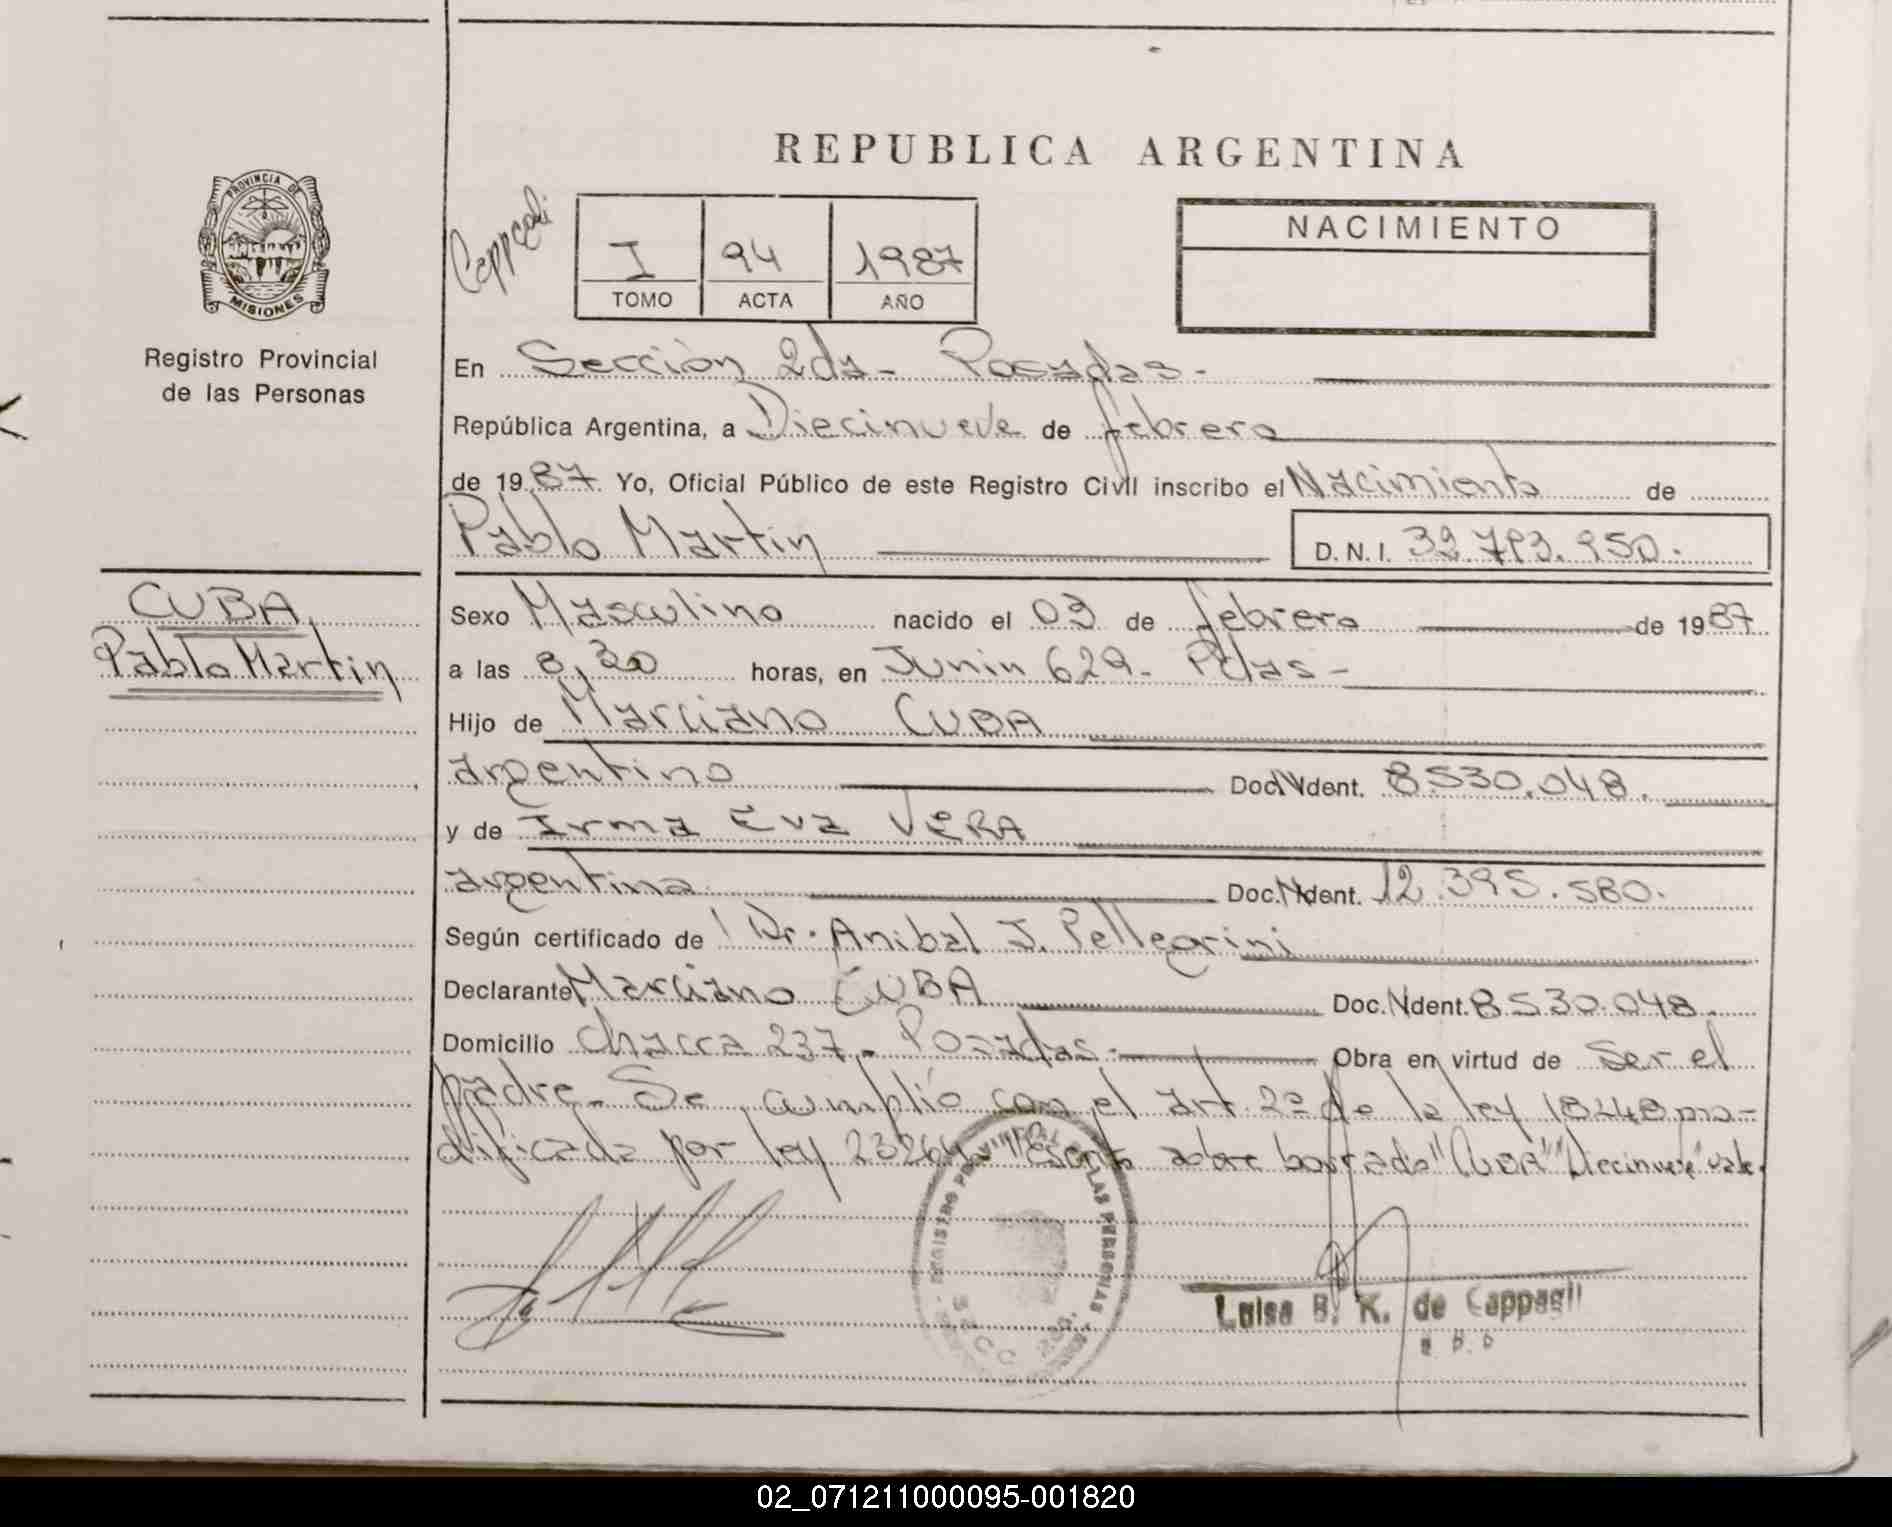 REPUBLICA ARGENTINA
PROVINCIA DE
MISIONES
Registro Provincial
de las Personas
I 94 1987
TOMO ACTA AÑO
NACIMIENTO
En Sección 2da - Posadas -
República Argentina, a Diecinueve de febrero
de 1987 Yo, Oficial Público de este Registro Civil inscribo el Nacimiento de
Pablo Martin D.N.I. 32.793.950.
CUBA
Pablo Martin
Sexo Masculino nacido el 03 de febrero de 1987
a las 8,30 horas, en Junin 629 - Pdas -
Hijo de Marciano CUBA
argentino Doc. Ident. 8.530.048.
y de Irma Eva VERA
argentina Doc. Ident. 12.395.580.
Según certificado de Dr. Anibal J. Pellegrini
Declarante Marciano CUBA Doc. Ident. 8.530.048.
Domicilio Chacra 237 - Posadas - Obra en virtud de ser el
padre - Se cumplió con el art. 2º de la ley 18248 mo-
dificada por ley 23264 - escrito sobre borrado "CUBA" "Diecinueve" vale
REGISTRO PROVINCIAL DE LAS PERSONAS
SECC 2da.
Luisa B. K. de Cappagli
02_071211000095-001820